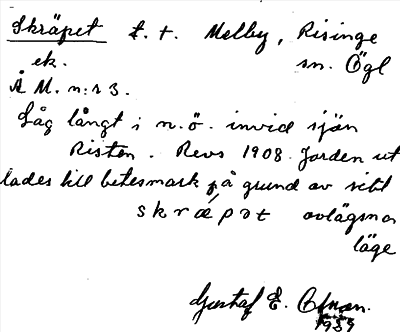 Skräpet t. t. Melby, Risinge
ek. sn. Ögl
Å M. n:r 3.
Låg långt i n.ö. invid sjön
Risten. Revs 1908. Jorden ut
lades till betesmark på grund av sitt
skräpot avlägsna
läge
Gustaf E.
1959